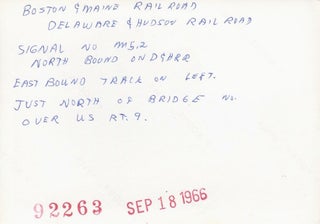 BOSTON & MAINE RAILROAD
DELAWARE & HUDSON RAILROAD
SIGNAL NO M5,2
NORTH BOUND ON D&HRR
EAST BOUND TRACK ON LEFT.
JUST NORTH OF BRIDGE NO.
OVER US RT. 9.
92263 SEP 18 1966